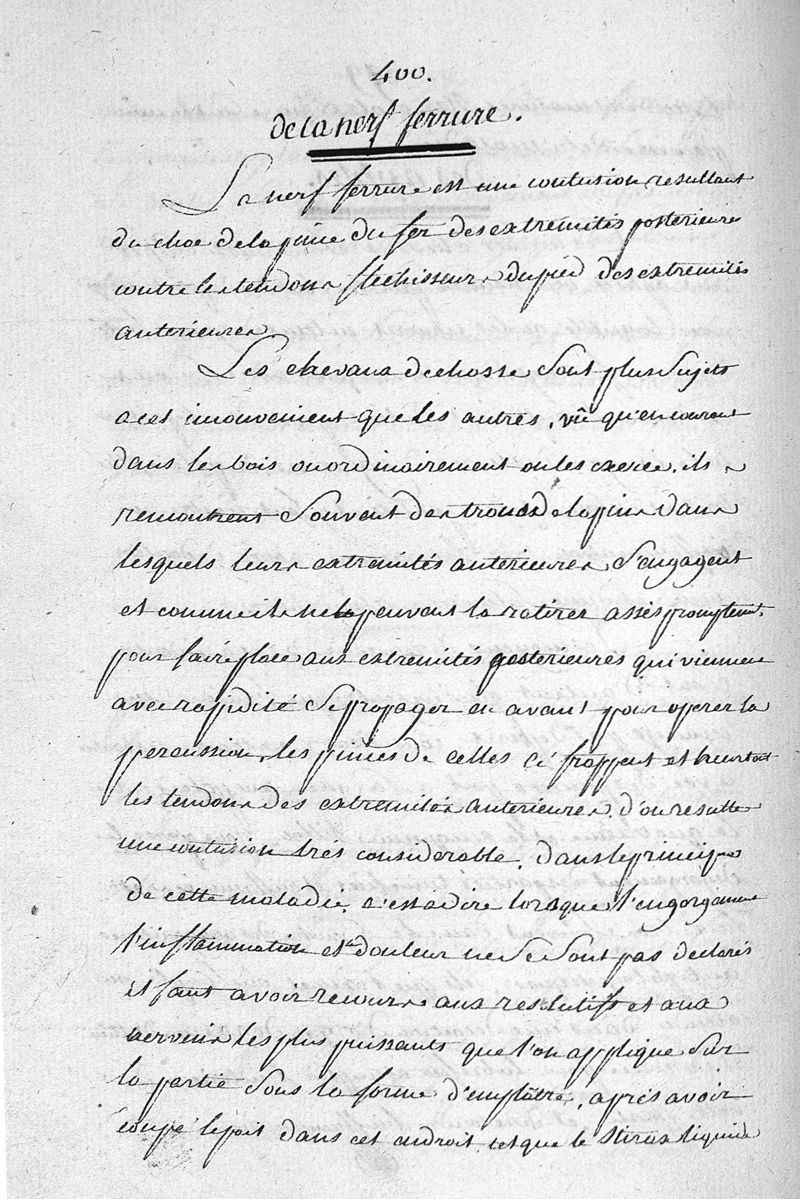 400.
de la nerf ferrure.
La nerf ferrure est une contusion resultant
du choc de la pince du fer des extremités posterieures
contre les tendons flechisseurs du pied des extremités
anterieures
Les chevaux de chasse sont plus sujets
a cet mouvement que les autres, vû qu'en courant
dans les bois ou ordinairement on les exerce, ils
rencontrent souvent des trous de lapins dans
lesquels leurs extremités anterieures s'engagent
et comme ils ne peuvent la retirer assés promptement
pour faire place aux extremités posterieures qui viennent
avec rapidité se propager en avant pour operer la
percussion, les pinces de celles ci frappent et heurtent
les tendons des extremités anterieures, d'ou resulte
une contusion trés considerable, dans le principe
de cette maladie, c'est a dire lorsque l'engorgement
l'inflammation et la douleur ne se sont pas declarés
il faut avoir recours aux resolutifs et aux
nervins les plus puissants que l'on applique sur
la partie sous la forme d'emplâtre, aprés avoir
coupé le poil dans cet androit tel que le stirax liquide